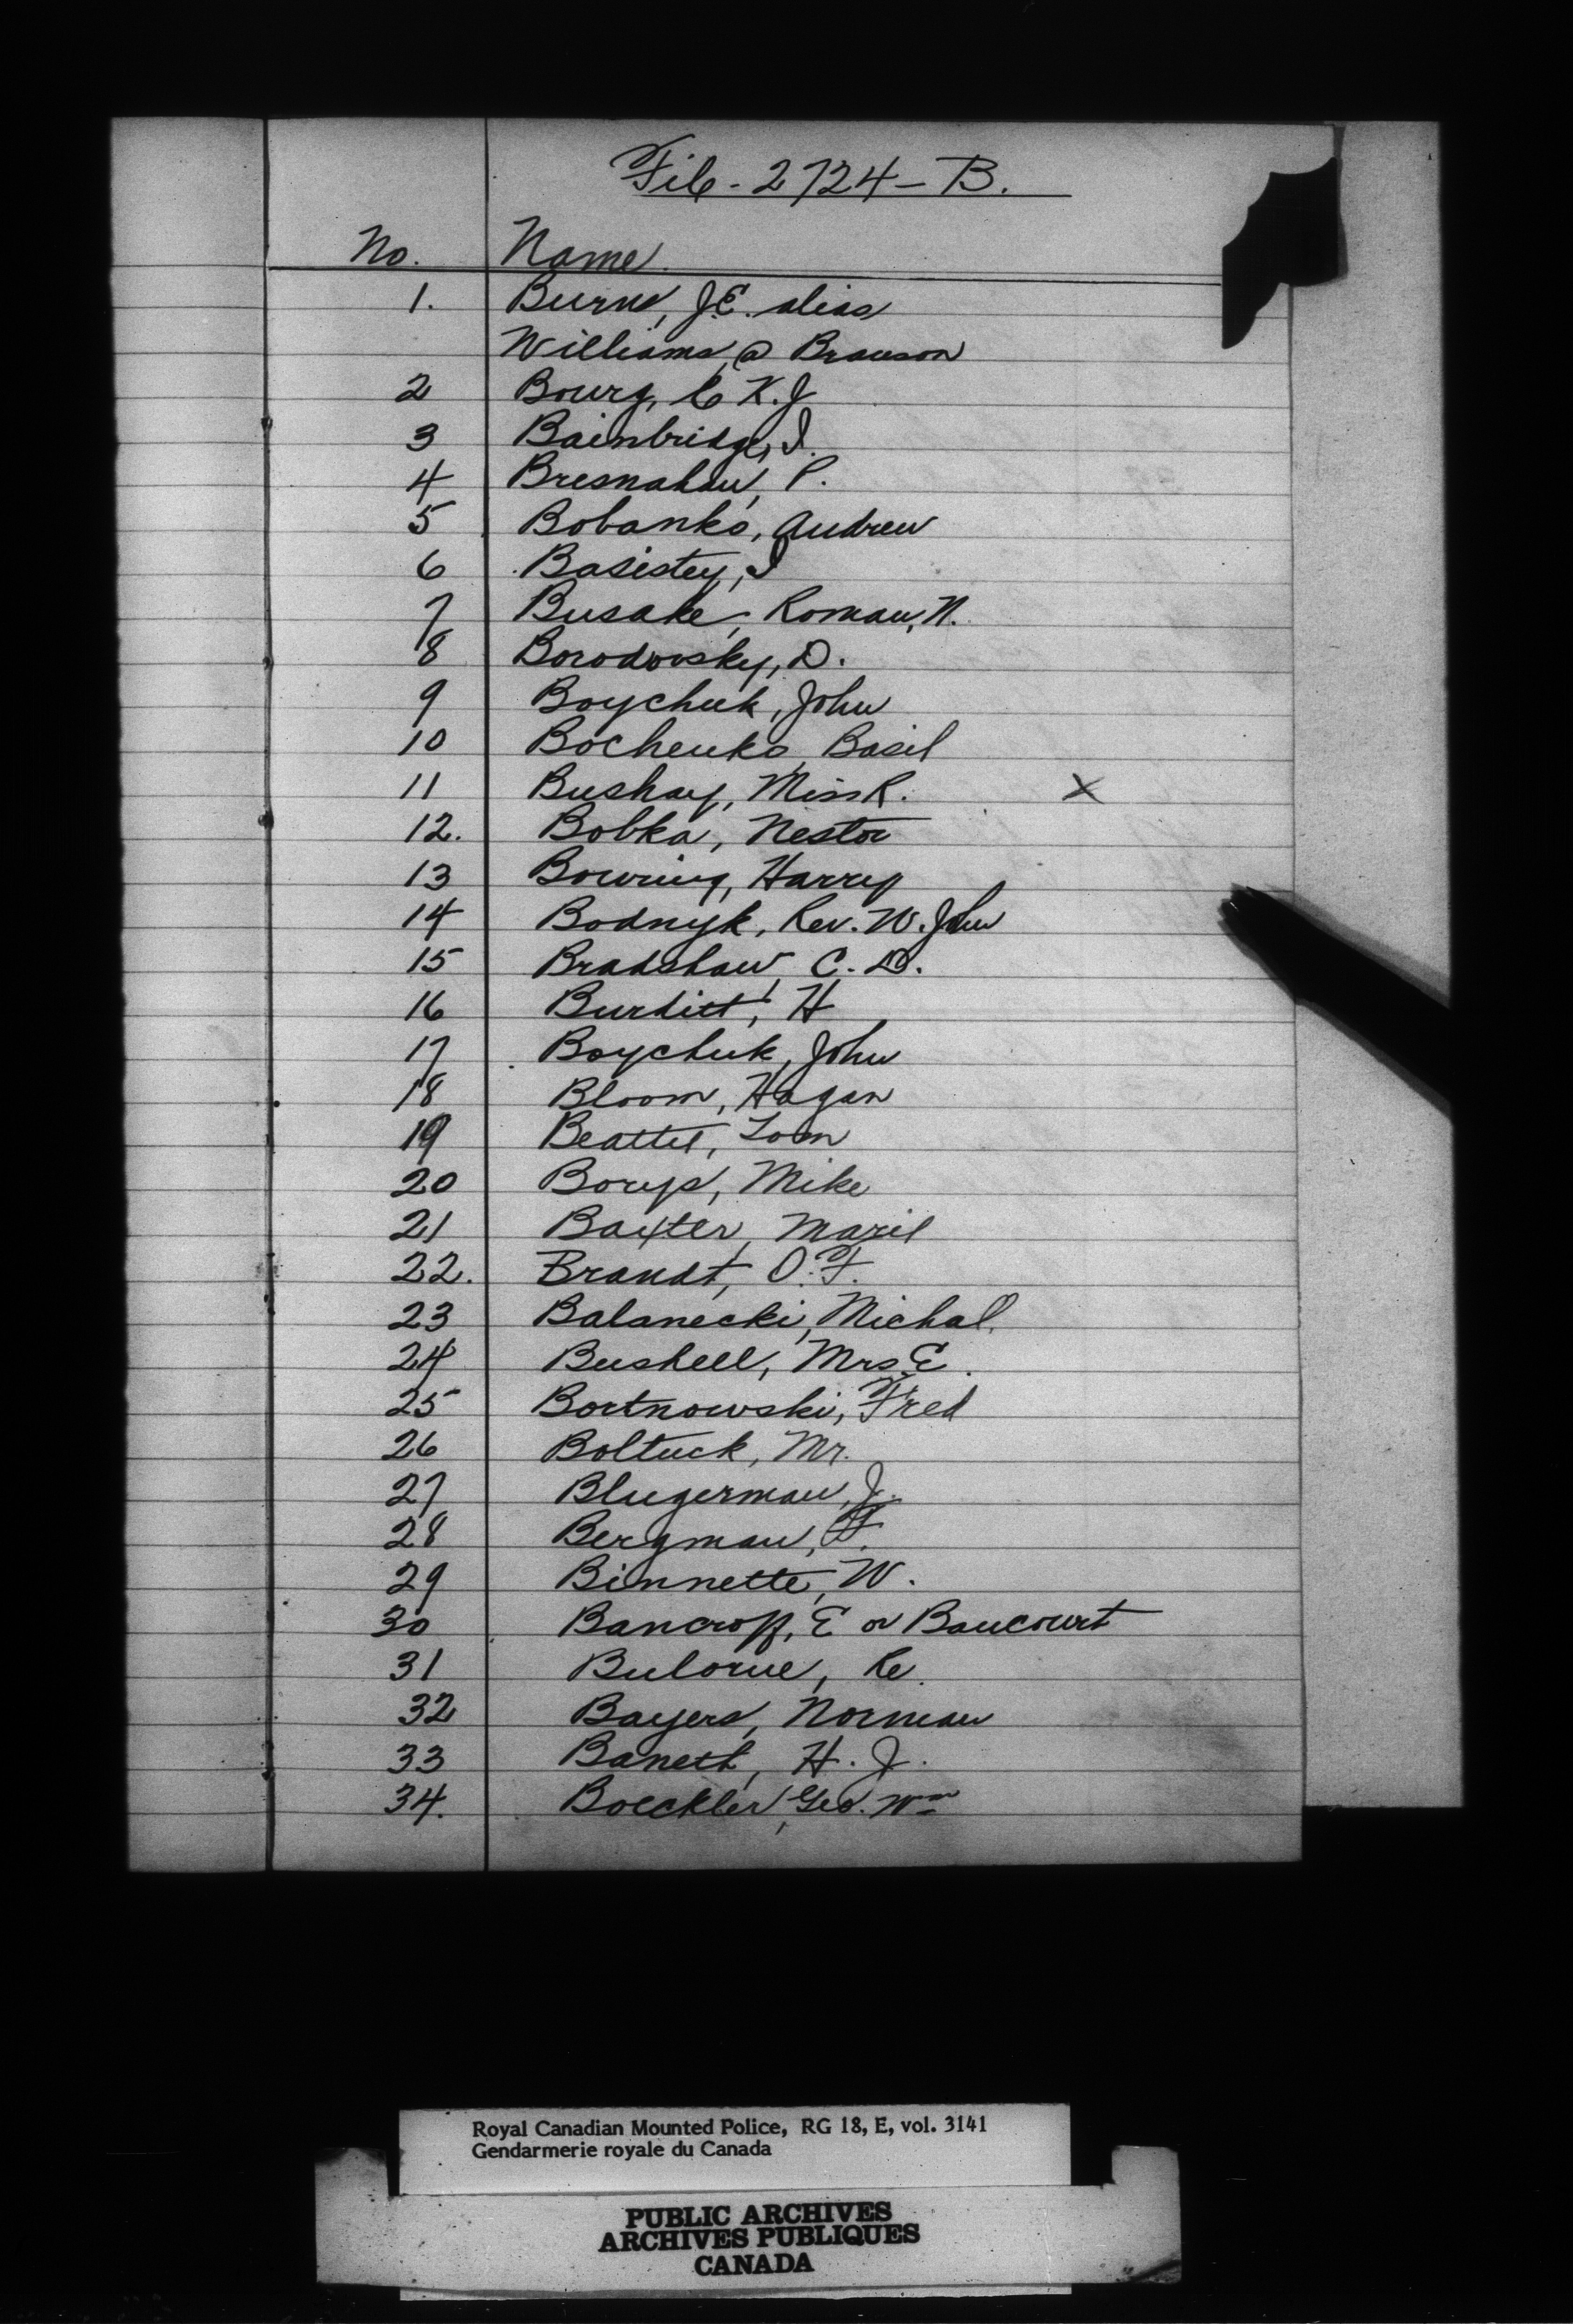 File - 2724 - B.
No. Name
1. Burns, J.E. alias
Williams, @ Brauson
2 Bourg, C K. J
3 Bainbridge, I.
4 Bresnahan, P.
5 Bobanko, Andrew
6 Basistey, I
7 Busake, Roman, N.
8 Borodovsky, D.
9 Boychuk, John
10 Bochenko, Basil
11 Bushay, Miss R. X
12. Bobka, Nestor
13 Bowring, Harry
14 Bodnyk, Rev. W. John
15 Bradshaw, C. D.
16 Burditt, H
17 Boychuk, John
18 Bloom, Hagan
19 Beattie, Tom
20 Borys, Mike
21 Baxter, Mazil
22. Brandt, O. F.
23 Balanecki, Michal.
24 Bushell, Mrs. E.
25 Bortnowski, Fred
26 Boltuck, Mr.
27 Blugerman, J.
28 Bergman, F.
29 Binnette, W.
30 Bancroft, E or Bancourt
31 Bulorue, Re.
32 Bayers, Norman
33 Baneth, H. J.
34. Boeckler, Geo. Wm
Royal Canadian Mounted Police, RG 18, E, vol. 3141
Gendarmerie royale du Canada
PUBLIC ARCHIVES
ARCHIVES PUBLIQUES
CANADA